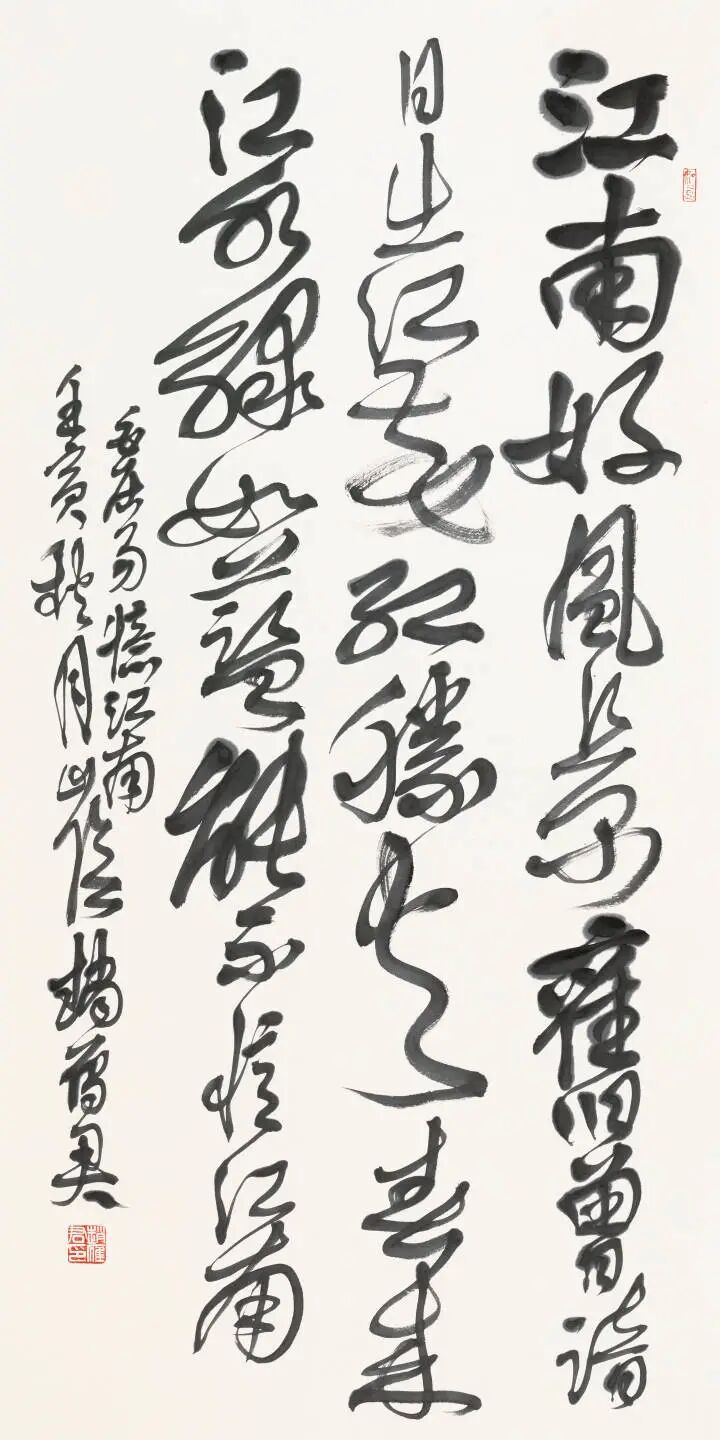 江南好風景舊曾諳
日出江花紅勝火春來
江水綠如藍能不憶江南
白居易憶江南
壬寅秋月山陰趙雁君
趙雁君印